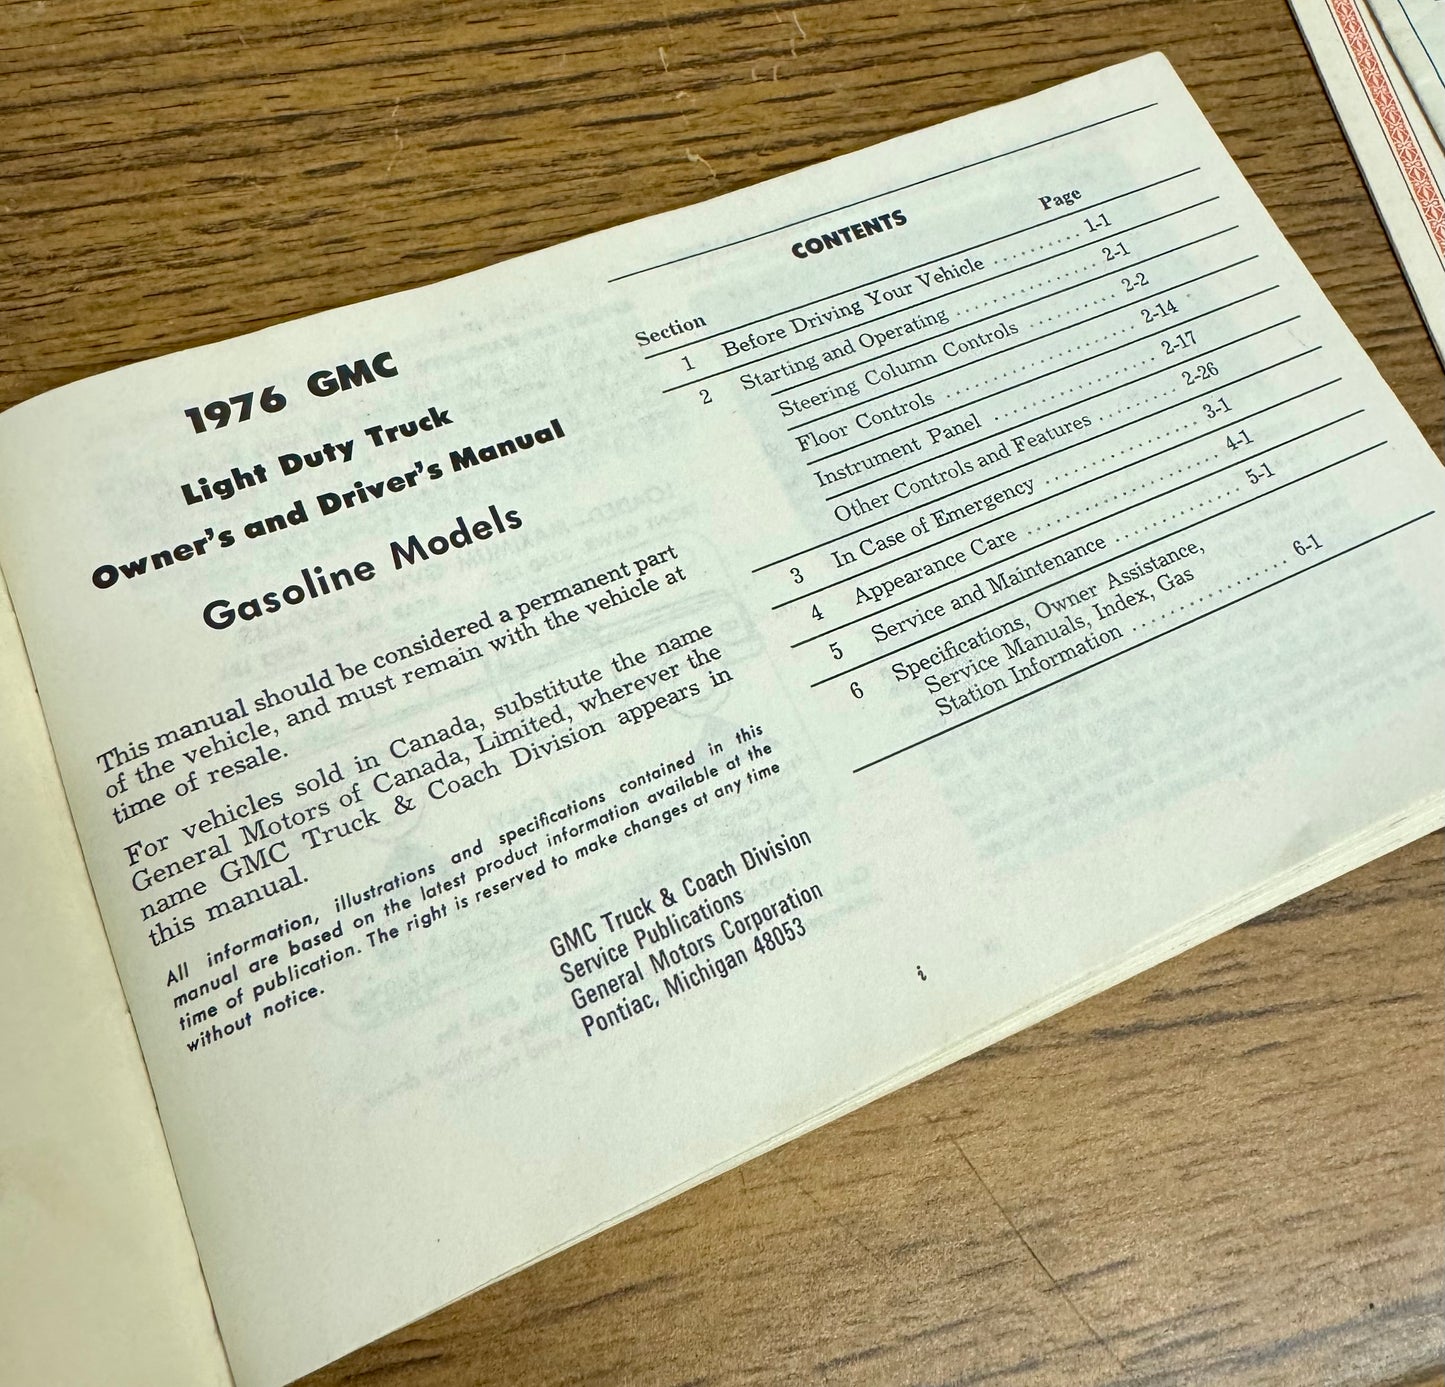 1976 GMC
Light Duty Truck
Owner's and Driver's Manual
Gasoline Models
This manual should be considered a permanent part
of the vehicle, and must remain with the vehicle at
time of resale.
For vehicles sold in Canada, substitute the name
General Motors of Canada, Limited, wherever the
name GMC Truck & Coach Division appears in
this manual.
All information, illustrations and specifications contained in this
manual are based on the latest product information available at the
time of publication. The right is reserved to make changes at any time
without notice.
GMC Truck & Coach Division
Service Publications
General Motors Corporation
Pontiac, Michigan 48053
CONTENTS
Section Page
1 Before Driving Your Vehicle .......... 1-1
2 Starting and Operating ................ 2-1
Steering Column Controls .......... 2-2
Floor Controls ...................... 2-14
Instrument Panel .................. 2-17
Other Controls and Features ......... 2-26
3 In Case of Emergency ................ 3-1
4 Appearance Care .................... 4-1
5 Service and Maintenance ............. 5-1
6 Specifications, Owner Assistance,
Service Manuals, Index, Gas
Station Information ................ 6-1
i